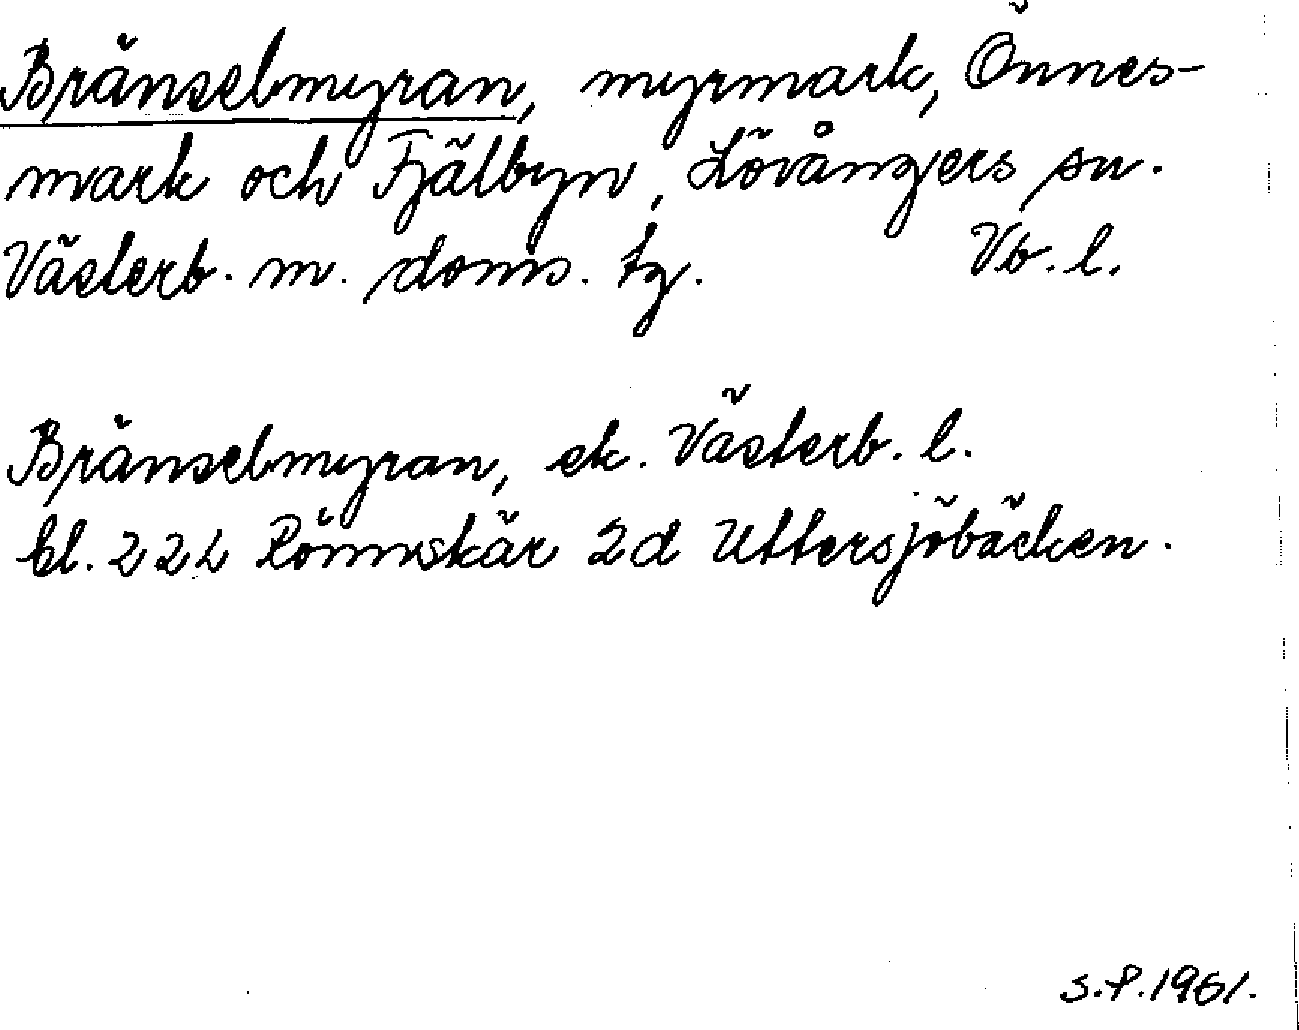 Bränselmyran, myrmark, Önnes-
mark och Fjälbyn, Lövångers sn.
Västerb. m. doms. tg. Vb. l.
Bränselmyran, ek. Västerb. l.
bl. 22L Rönnskär 2d Uttersjöbäcken.
S.P. 1961.